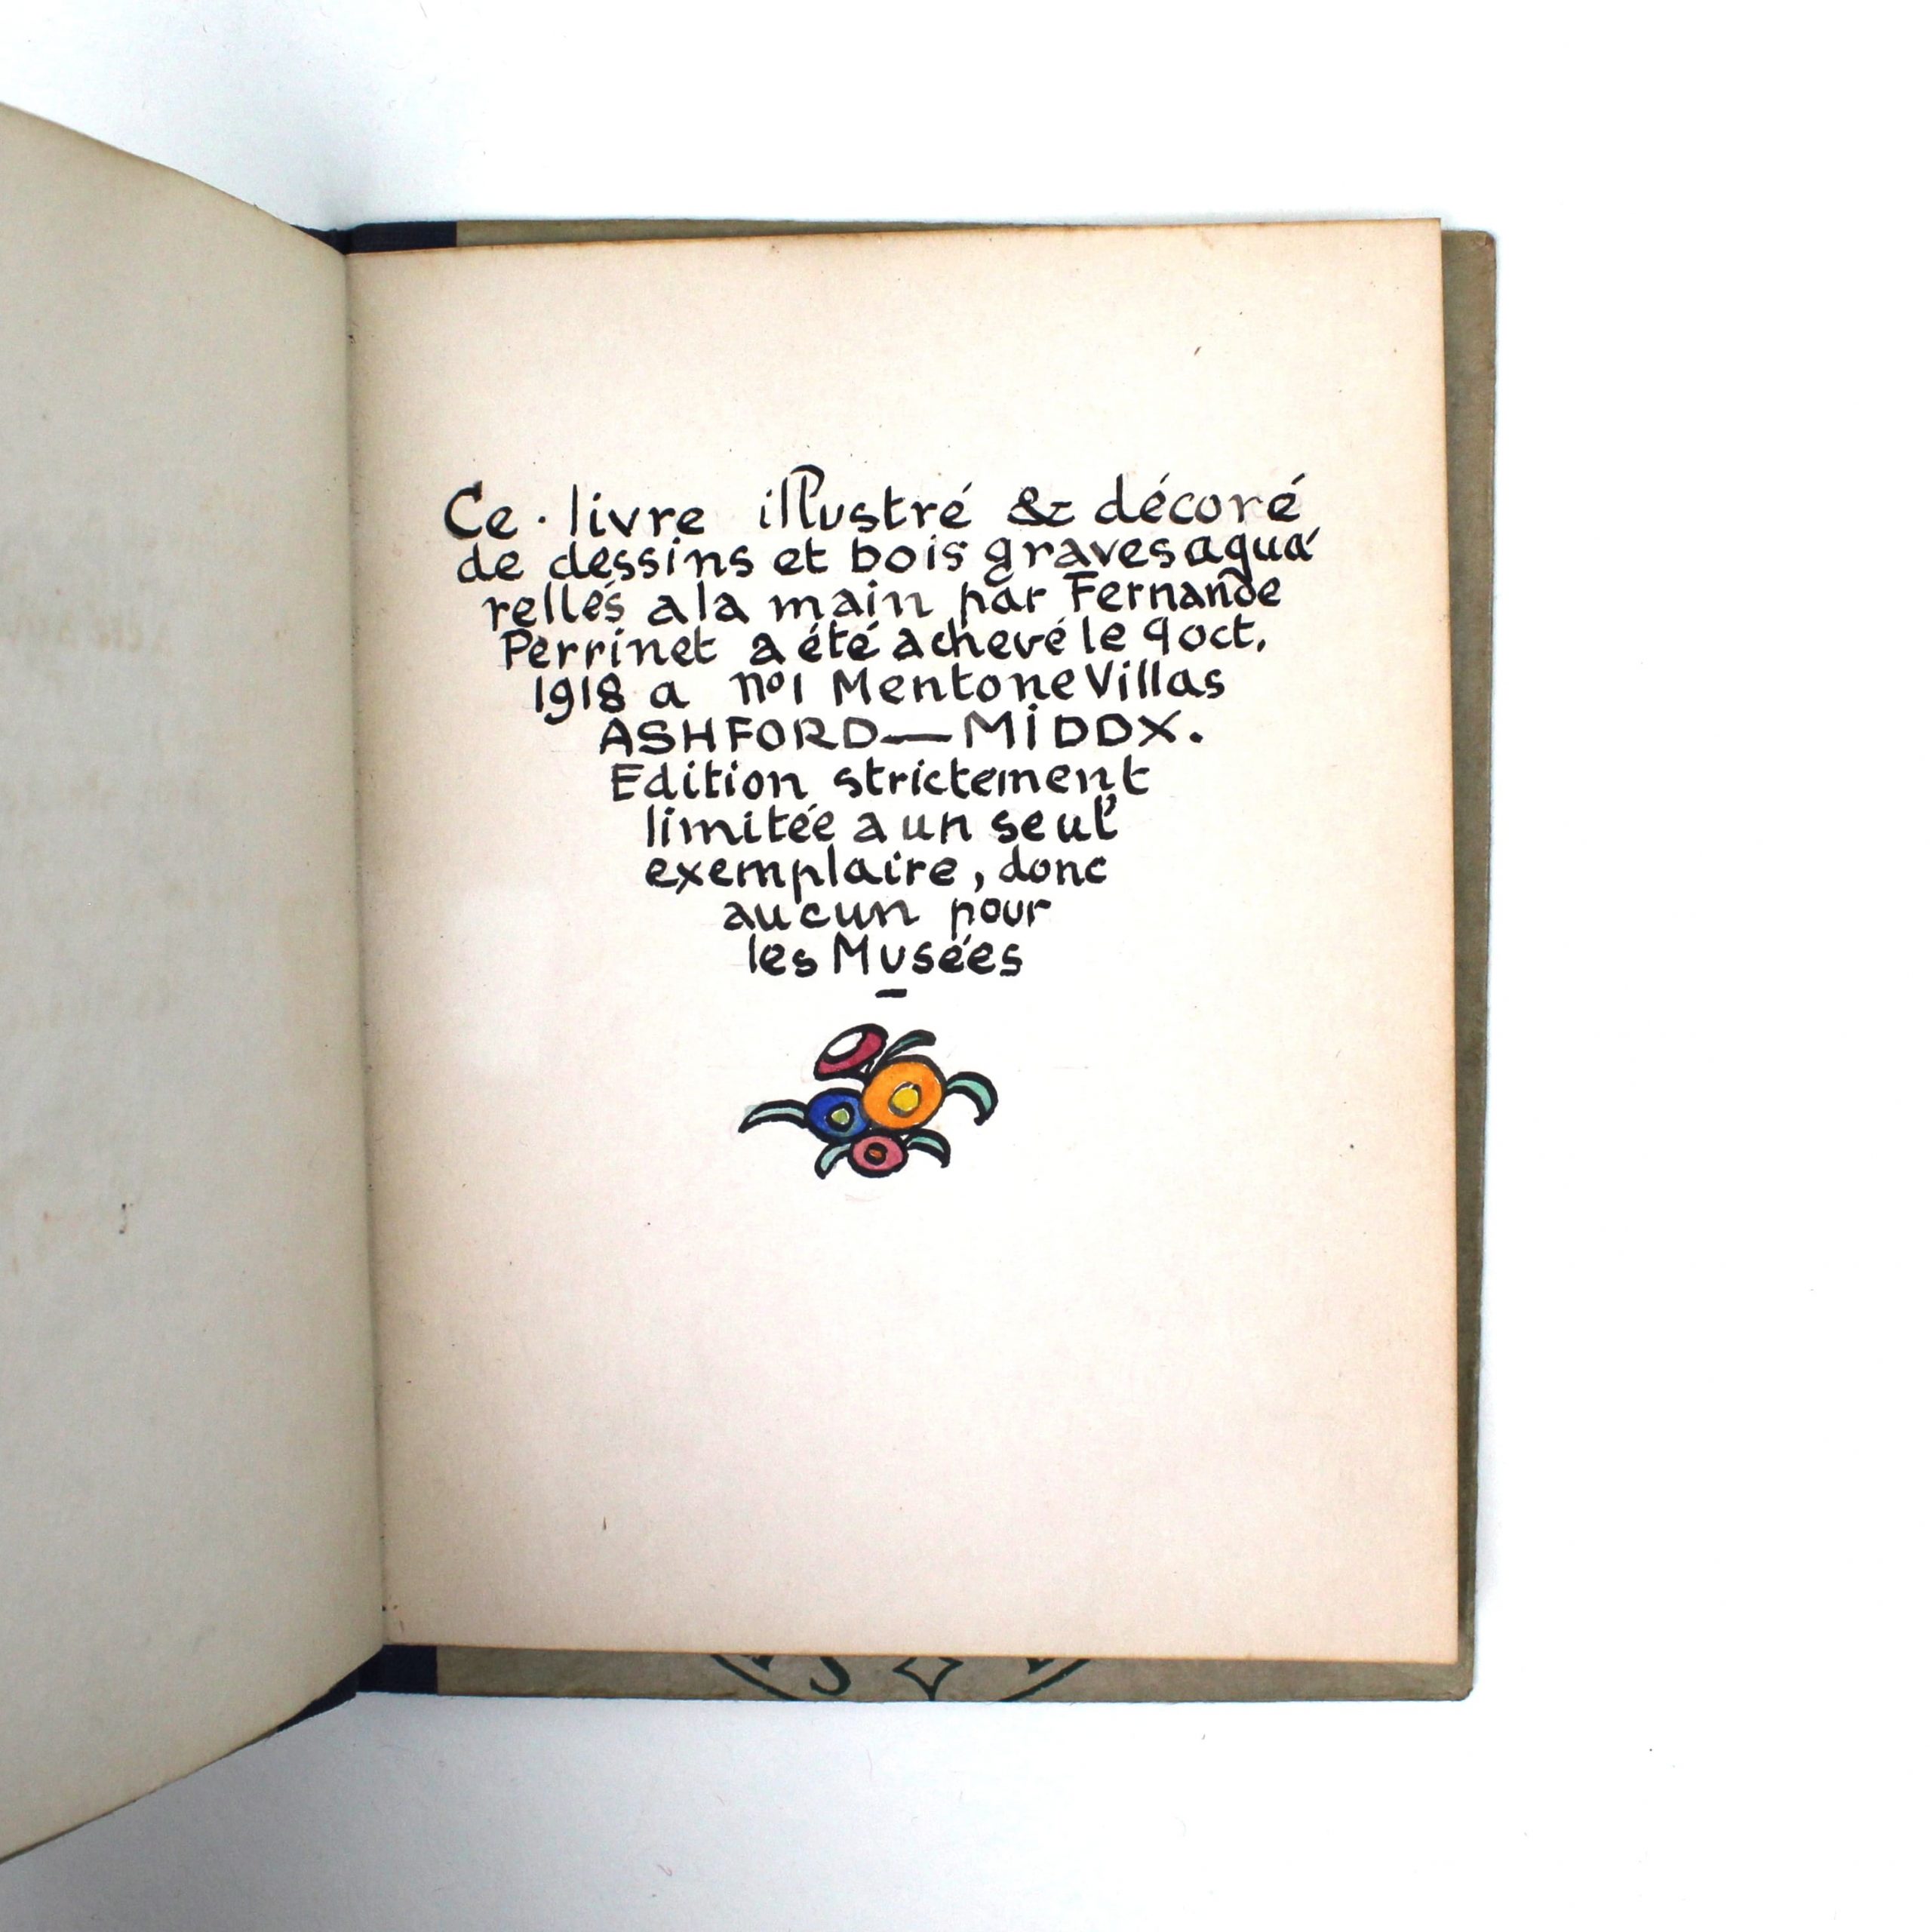 Ce · livre illustré & décoré
de dessins et bois graves aqua
rellés a la main par Fernande
Perrinet a été achevé le 9 oct.
1918 a no1 Mentone Villas
ASHFORD — MIDDX.
Edition strictement
limitée a un seul
exemplaire, donc
aucun pour
les Musées